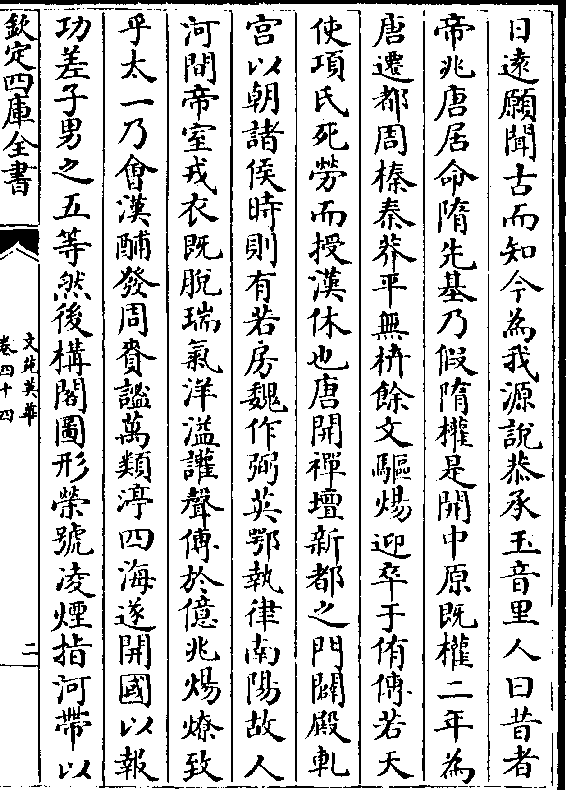 日遠願聞古而知今為我源說恭承玉音里人曰昔者
帝兆唐居命隋先基乃假隋權是開中原既權二年為
唐遷都周榛秦莽平無枿餘文驅煬迎卒于侑傳若天
使項氏死勞而授漢休也唐開禪壇新都之門闢殿軋
宮以朝諸侯時則有若房魏作弼英鄂執律南陽故人
河間帝室戎衣既脫瑞氣洋溢讙聲傳於億兆煬燎致
乎太一乃會漢酺發周賚謐萬類渟四海遂開國以報
功差子男之五等然後構閣圖形榮號凌煙指河帶以
欽定四庫全書
文苑英華
卷四十四
二